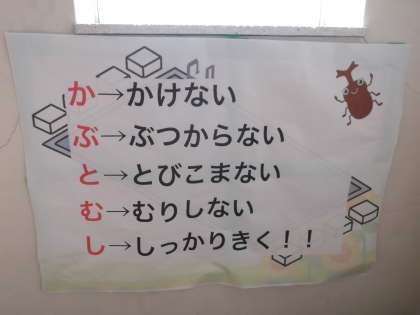 か→かけない
ぶ→ぶつからない
と→とびこまない
む→むりしない
し→しっかりきく！！